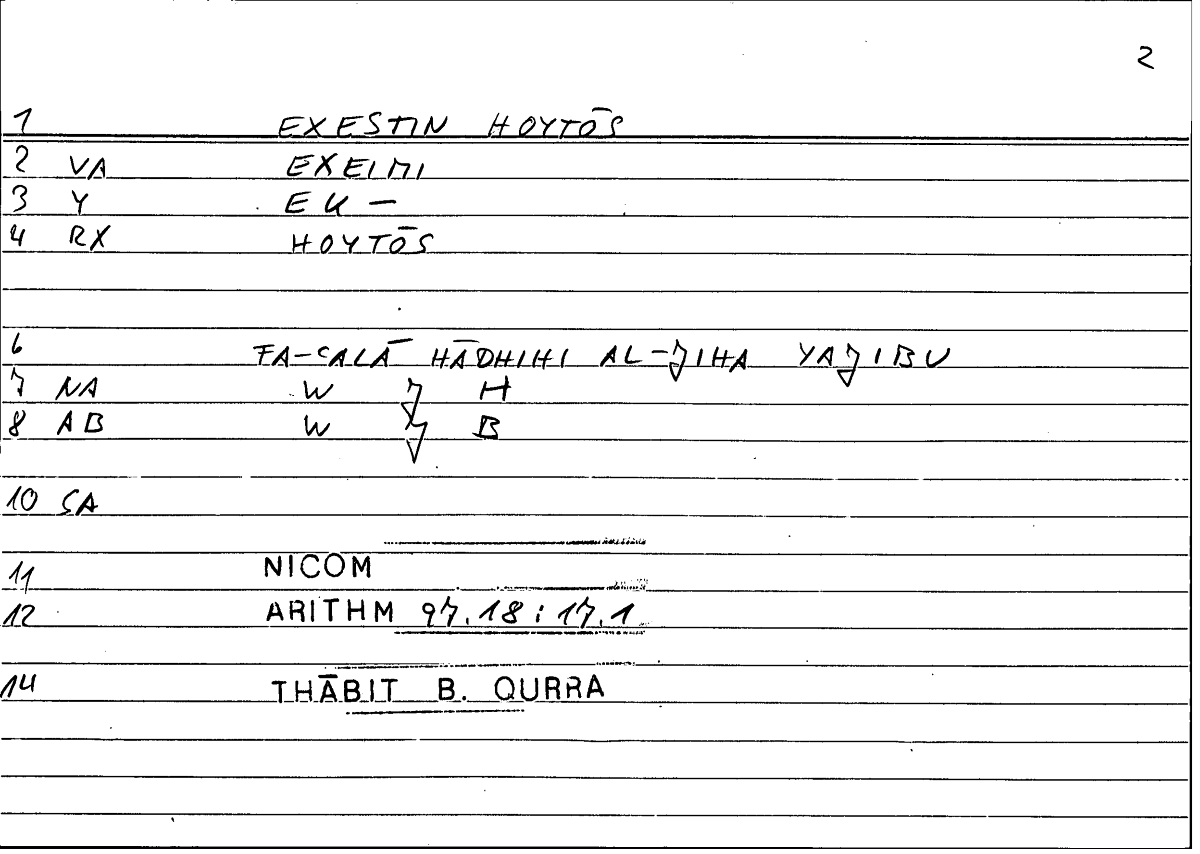 2
1 EXESTIN HOYTŌS
2 VA EXEIMI
3 Y EK —
4 RX HOYTŌS
6 FA-ʿALĀ HĀDHIHI AL-JIHA YAJIBU
7 NA W J H
8 AB W J B
10 SA
11 NICOM
12 ARITHM 97.18 : 17.1
14 THĀBIT B. QURRA